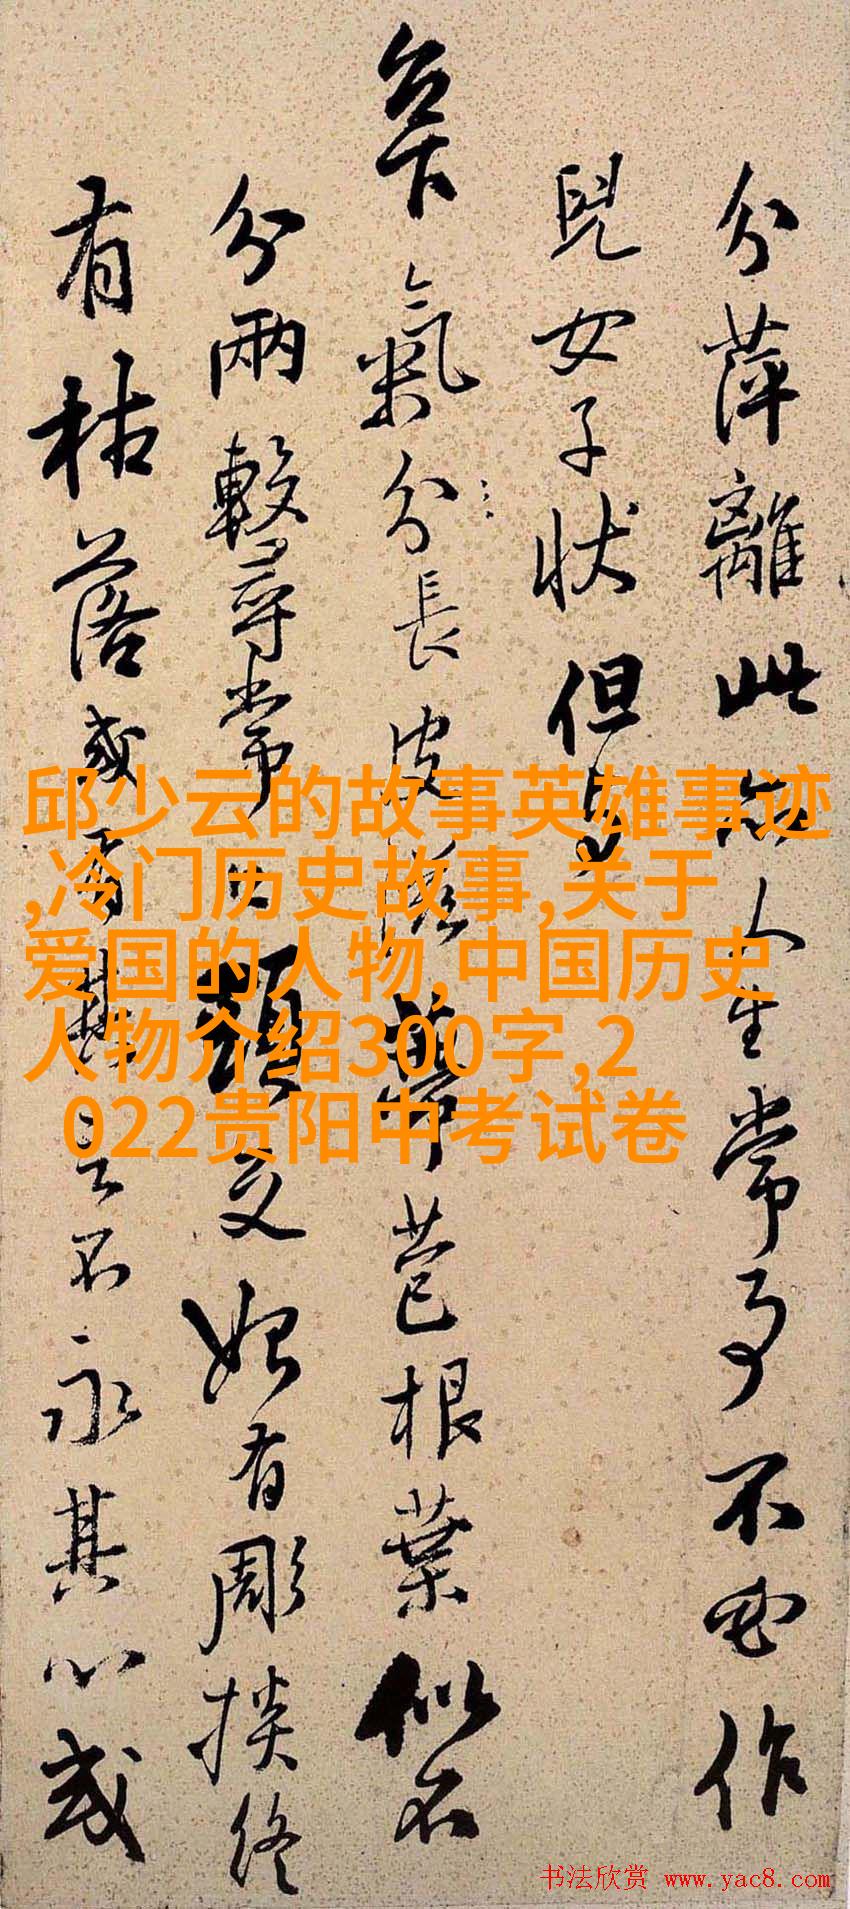 分萍離此人生常事不作
兒女子狀但
氣分長皮苞根葉似不
分兩尋常文始有彫掞終
有枯落或不永其心或
邱少云的故事英雄事迹
,冷门历史故事,关于
爱国的人物,中国历史
人物介绍300字,2
022贵阳中考试卷
书法欣赏 www.yac8.com